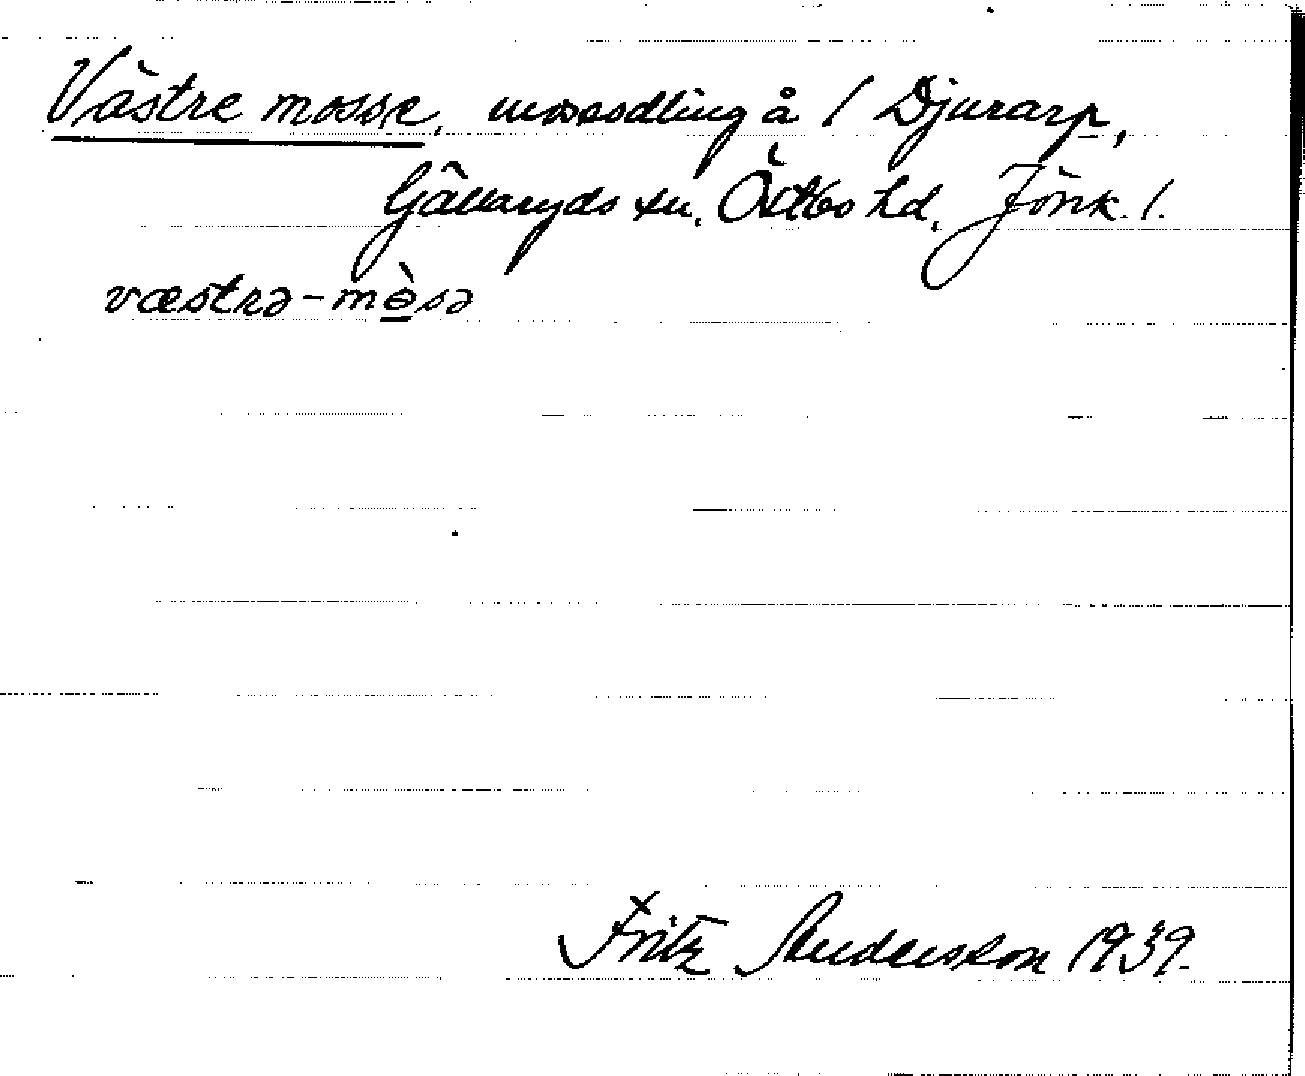 Västre mosse, mossodling å / Djurarp,
Gällaryds sn, Östbo hd, Jönk. l.
væstrə-mòsə
Fritz Andersson 1939.